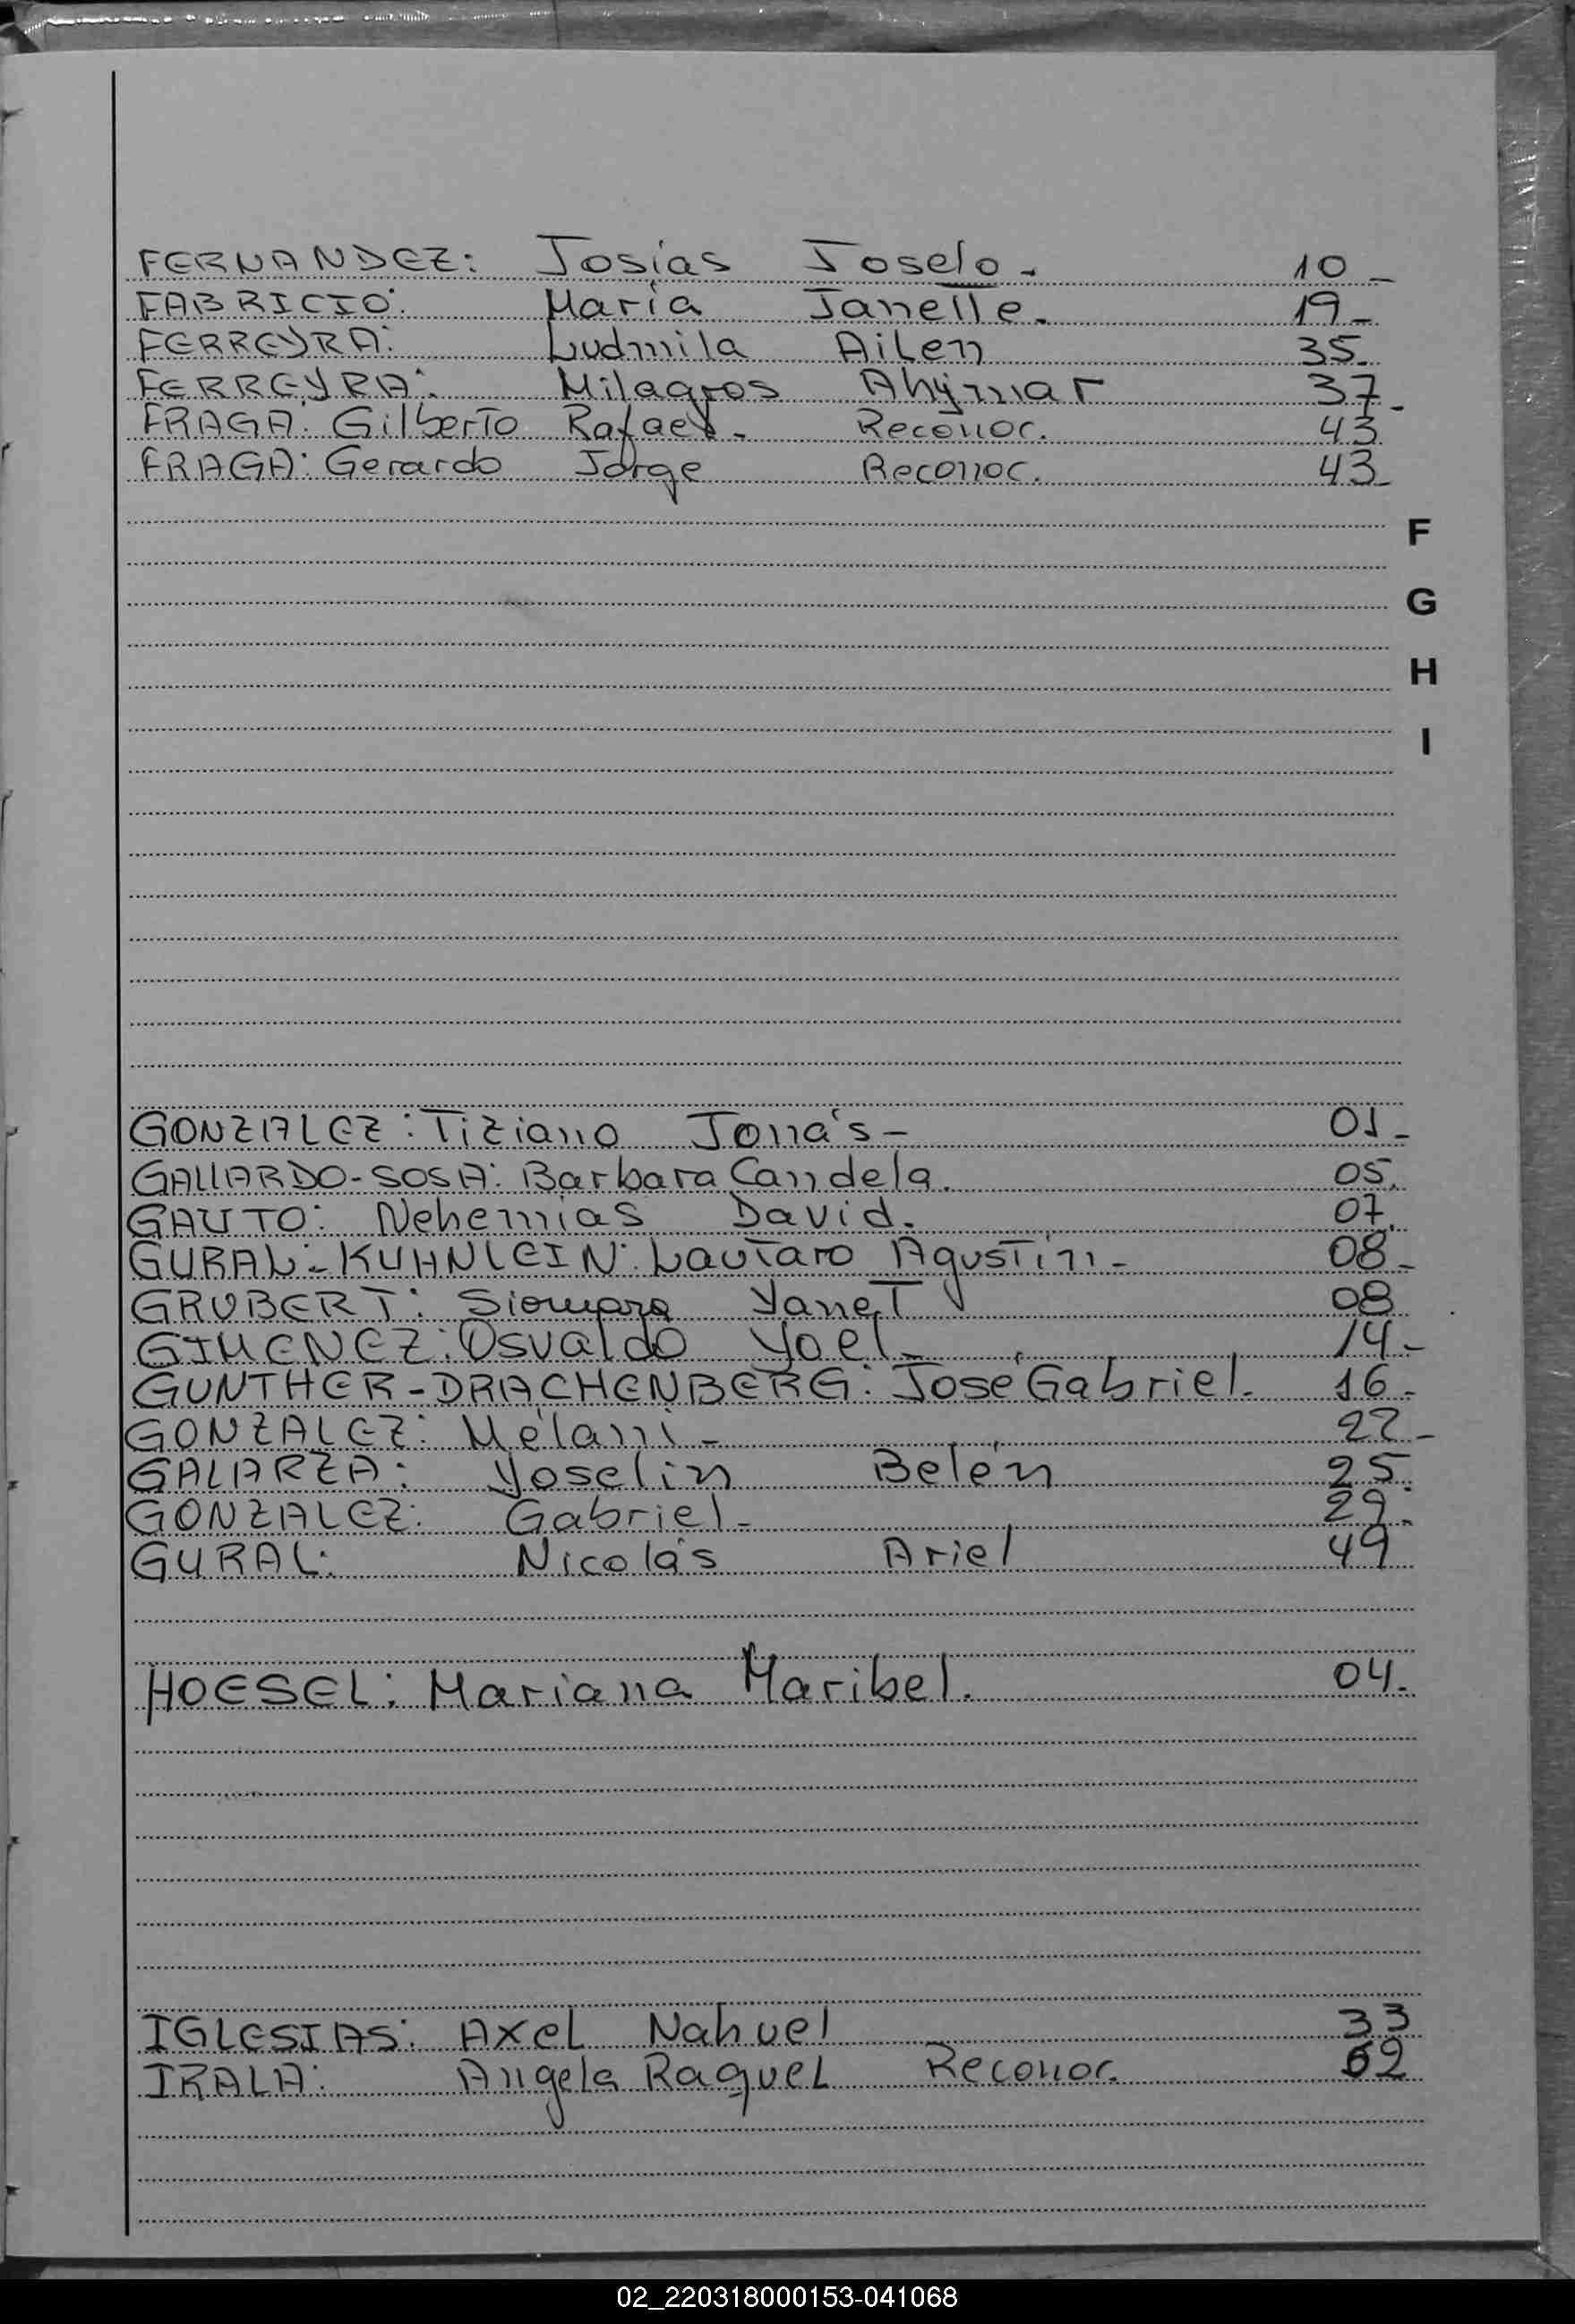 FERNANDEZ: Josías Joselo. 10-
FABRICIO: María Janette. 19-
FERREYRA: Ludmila Ailen 35.
FERREYRA: Milagros Ahymar 37-
FRAGA: Gilberto Rafael. Reconoc. 43
FRAGA: Gerardo Jorge Reconoc. 43-
F
G
H
I
GONZALEZ: Tiziano Jonás- 01-
GALLARDO-SOSA: Barbara Candela. 05.
GAUTO: Nehemias David. 07.
GURAL-KUHNLEIN: Lautaro Agustín- 08-
GRUBERT: Siomara Yanet 08
GIMENEZ: Osvaldo Yoel- 14-
GUNTHER-DRACHENBERG: José Gabriel. 16-
GONZALEZ: Mélani- 22-
GALARZA: Yoselin Belén 25.
GONZALEZ: Gabriel- 29-
GURAL: Nicolás Ariel 49
HOESEL: Mariana Maribel. 04-
IGLESIAS: Axel Nahuel 33
IRALA: Angela Raquel Reconoc.
02_220318000153-041068